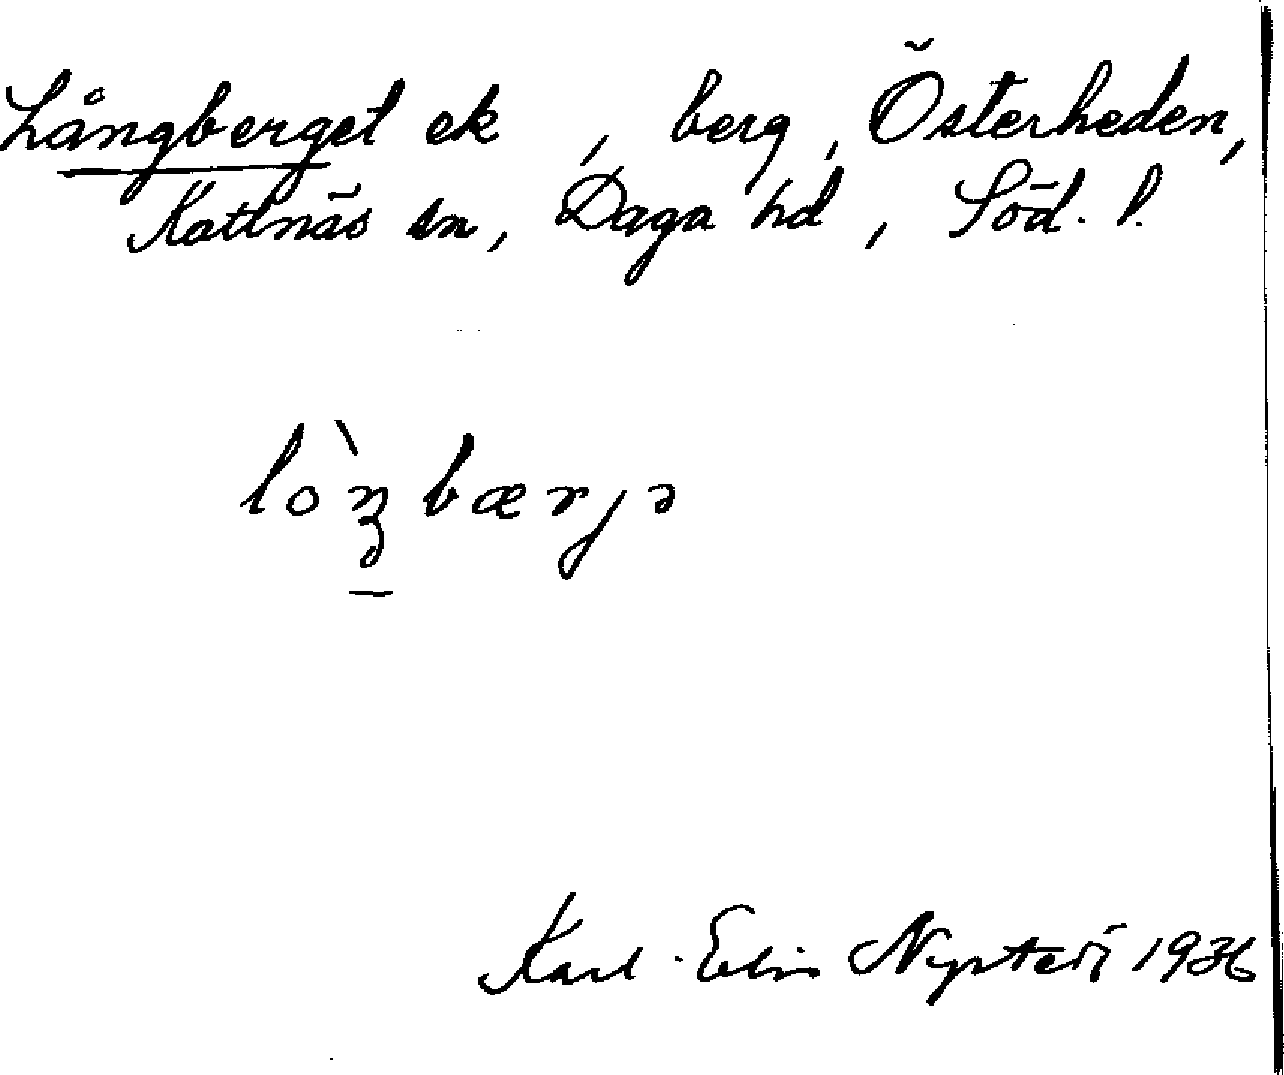 Långberget ek, berg, Österheden,
Kattnäs sn, Daga hd, Söd. l.
lo`ŋbærjə
Karl-Elis Nysted 1936